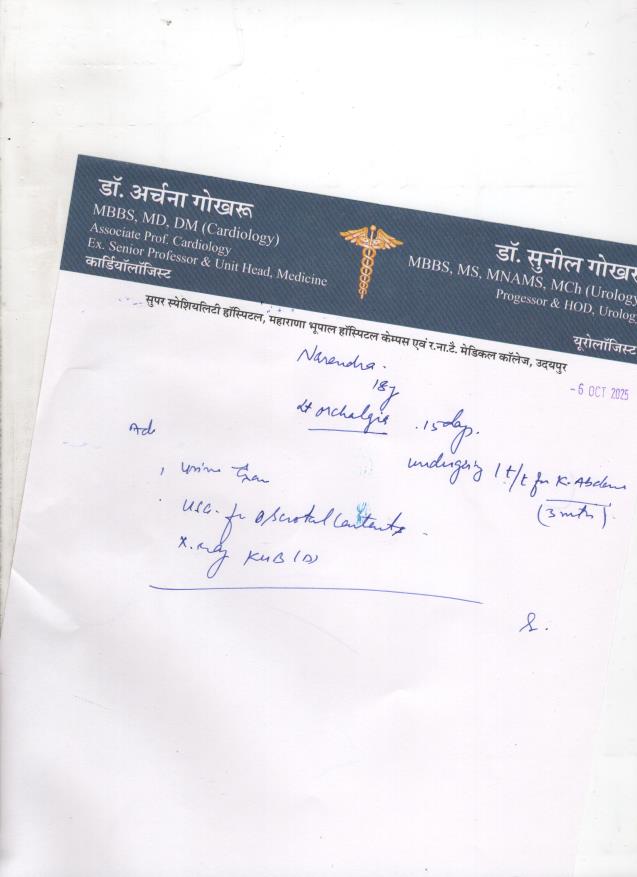 डॉ. अर्चना गोखरू
MBBS, MD, DM (Cardiology)
Associate Prof. Cardiology
Ex. Senior Professor & Unit Head, Medicine
कार्डियोलॉजिस्ट
डॉ. सुनील गोखर
MBBS, MS, MNAMS, MCh (Urology
Progessor & HOD, Urolog
यूरोलॉजिस्ट
सुपर स्पेशियलिटी हॉस्पिटल, महाराणा भूपाल हॉस्पिटल केम्पस एवं र.ना.टै. मेडिकल कॉलेज, उदयपुर
Narendra.
18y
- 6 OCT 2025
Lt orchalgia . 15 days.
Adv
undergoing t/t for K. Abdomen
(3 mth)
urine Exam
USG. for Scrotal Contents.
X.ray KUB